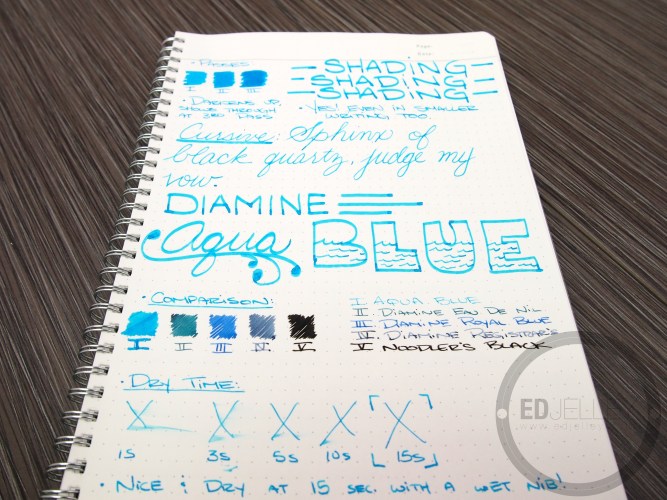 Page
Date
• PASSES
I II III
— SHADING —
— SHADING —
— SHADING —
• DARKENS UP,
SHOWS THROUGH
AT 3RD PASS
• YES! EVEN IN SMALLER
WRITING TOO.
Cursive: Sphinx of
black quartz, judge my
vow.
DIAMINE
Aqua BLUE
• COMPARISON:
I II III IV V
I AQUA BLUE
II. DIAMINE EAU DE NIL
III. DIAMINE ROYAL BLUE
IV. DIAMINE REGISTRAR'S
V NOODLER'S BLACK
• DRY TIME:
X X X X X
1s 3s 5s 10s 15s
• NICE : DRY AT 15 SEC. WITH A WET NIB!
EDJELLEY